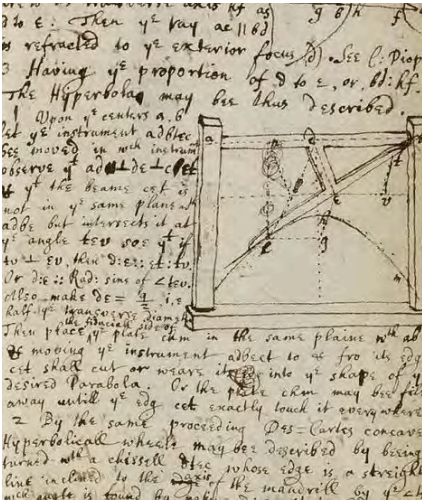 d to e: Then yᵉ ray ac || bd
is refracted to yᵉ exterior focus (d). See C: Diop
3 Having yᵉ proportion of d to e, or bd: hf.
The Hyperbola may bee thus described.
1 Upon yᵉ centers a, b
let yᵉ instrument adbtec
bee moved in wch instrum
observe yᵗ ad ⊥ de ⊥ cet
& yᵗ the beame cet is
not in yᵉ same plane wth
adbe but intersects it at
yᵉ angle tev soe yᵗ if
tv ⊥ ev, then d:e :: et:tv.
Or d:e :: Rad: sine of ∠tev.
Also make de = q/2 i.e
half yᵉ transverse diameter
Then place the fiduciall side of
yᵉ plate chm in the same plaine wth ab
& moving yᵉ instrument adbect to & fro its edg
cet shall cut or weare it into yᵉ shape of yᵉ
desired Parabola. Or the plate chm may bee filed
away untill yᵉ edg cet exactly touch it everywhere
2 By the same proceeding Des=Cartes concave
Hyperbolicall wheele may bee described by beeing
turned wth a chissell dtec whose edge is a streight
line inclined to the of the mandrill by yᵉ ∠t
wch angle is found by making